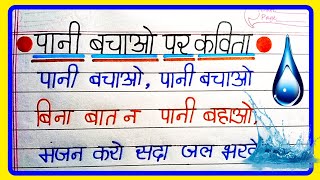 पानी बचाओ पर कविता
पानी बचाओ, पानी बचाओ
बिना बात न पानी बहाओ,
मंजन करो सदा जल भरके